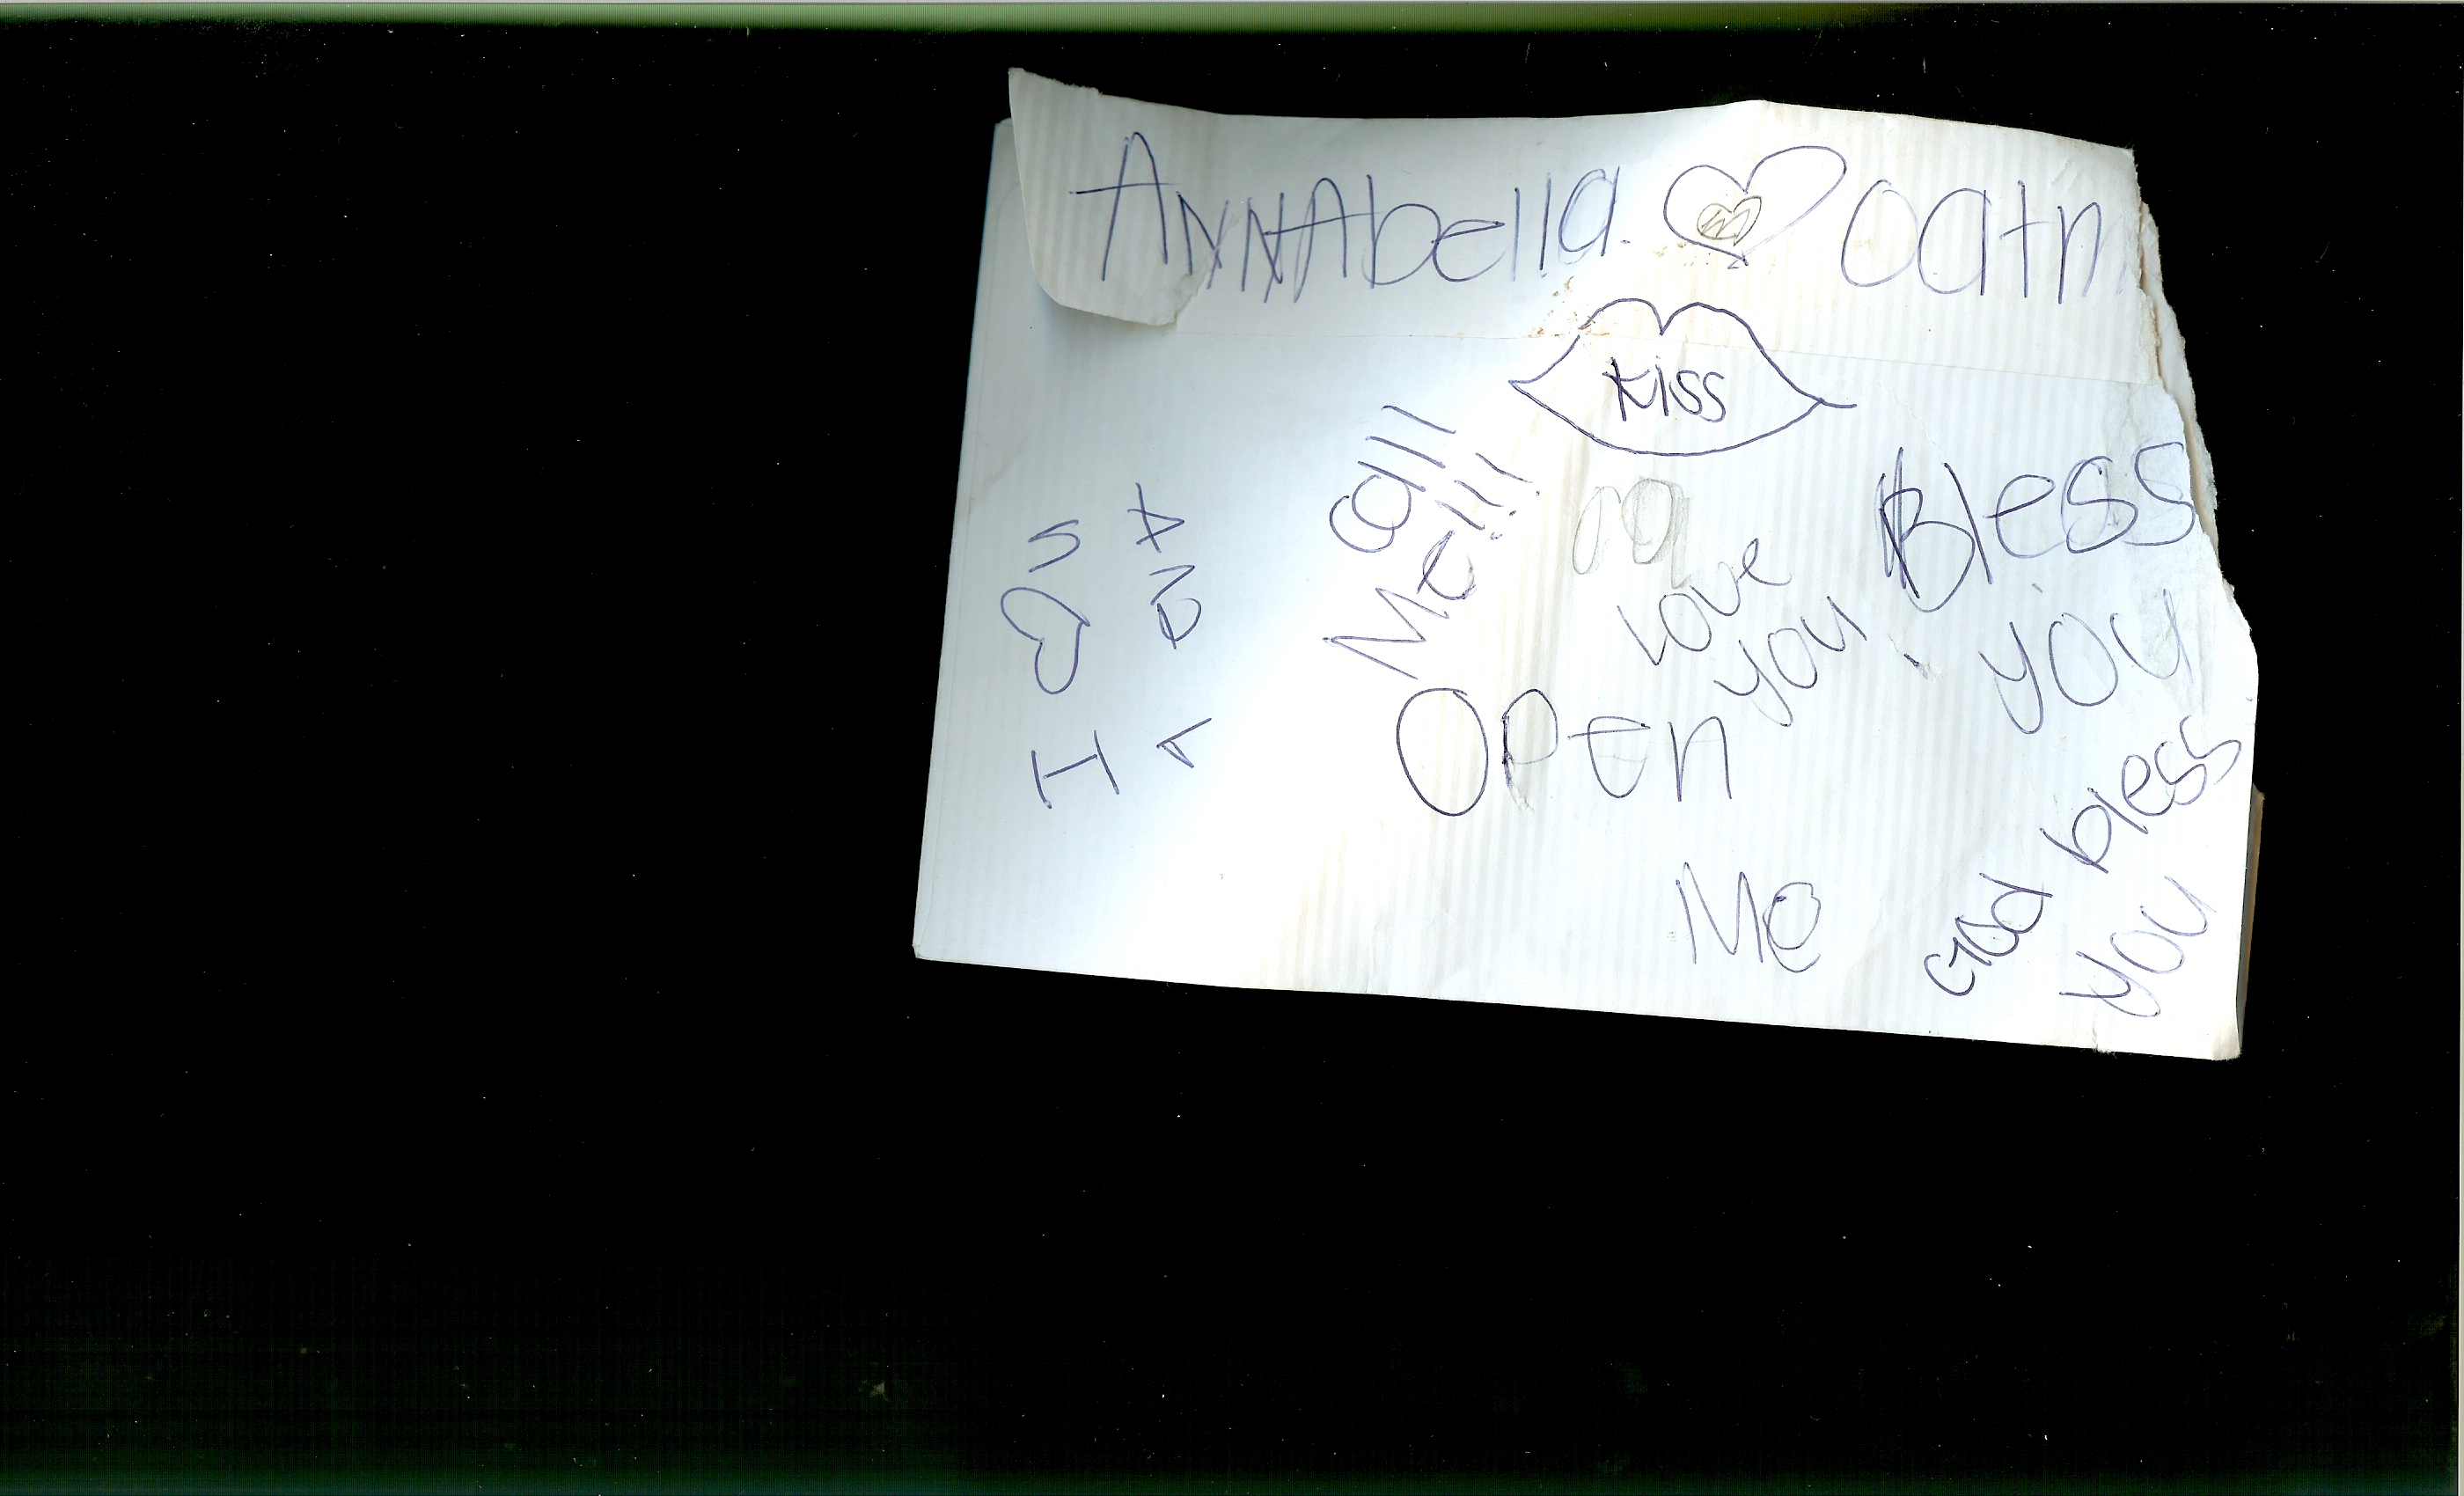 ANNAbella. oatm
Kiss
call
Me!!!
love
you
Bless
you
OPEn
Me
God bless
you
I U